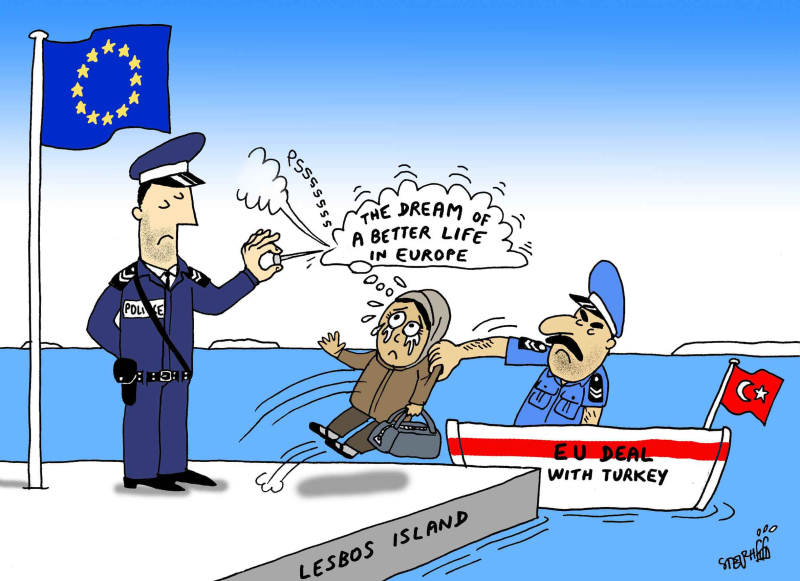 PSSSSSSSS
THE DREAM OF
A BETTER LIFE
IN EUROPE
POLICE
EU DEAL
WITH TURKEY
LESBOS ISLAND